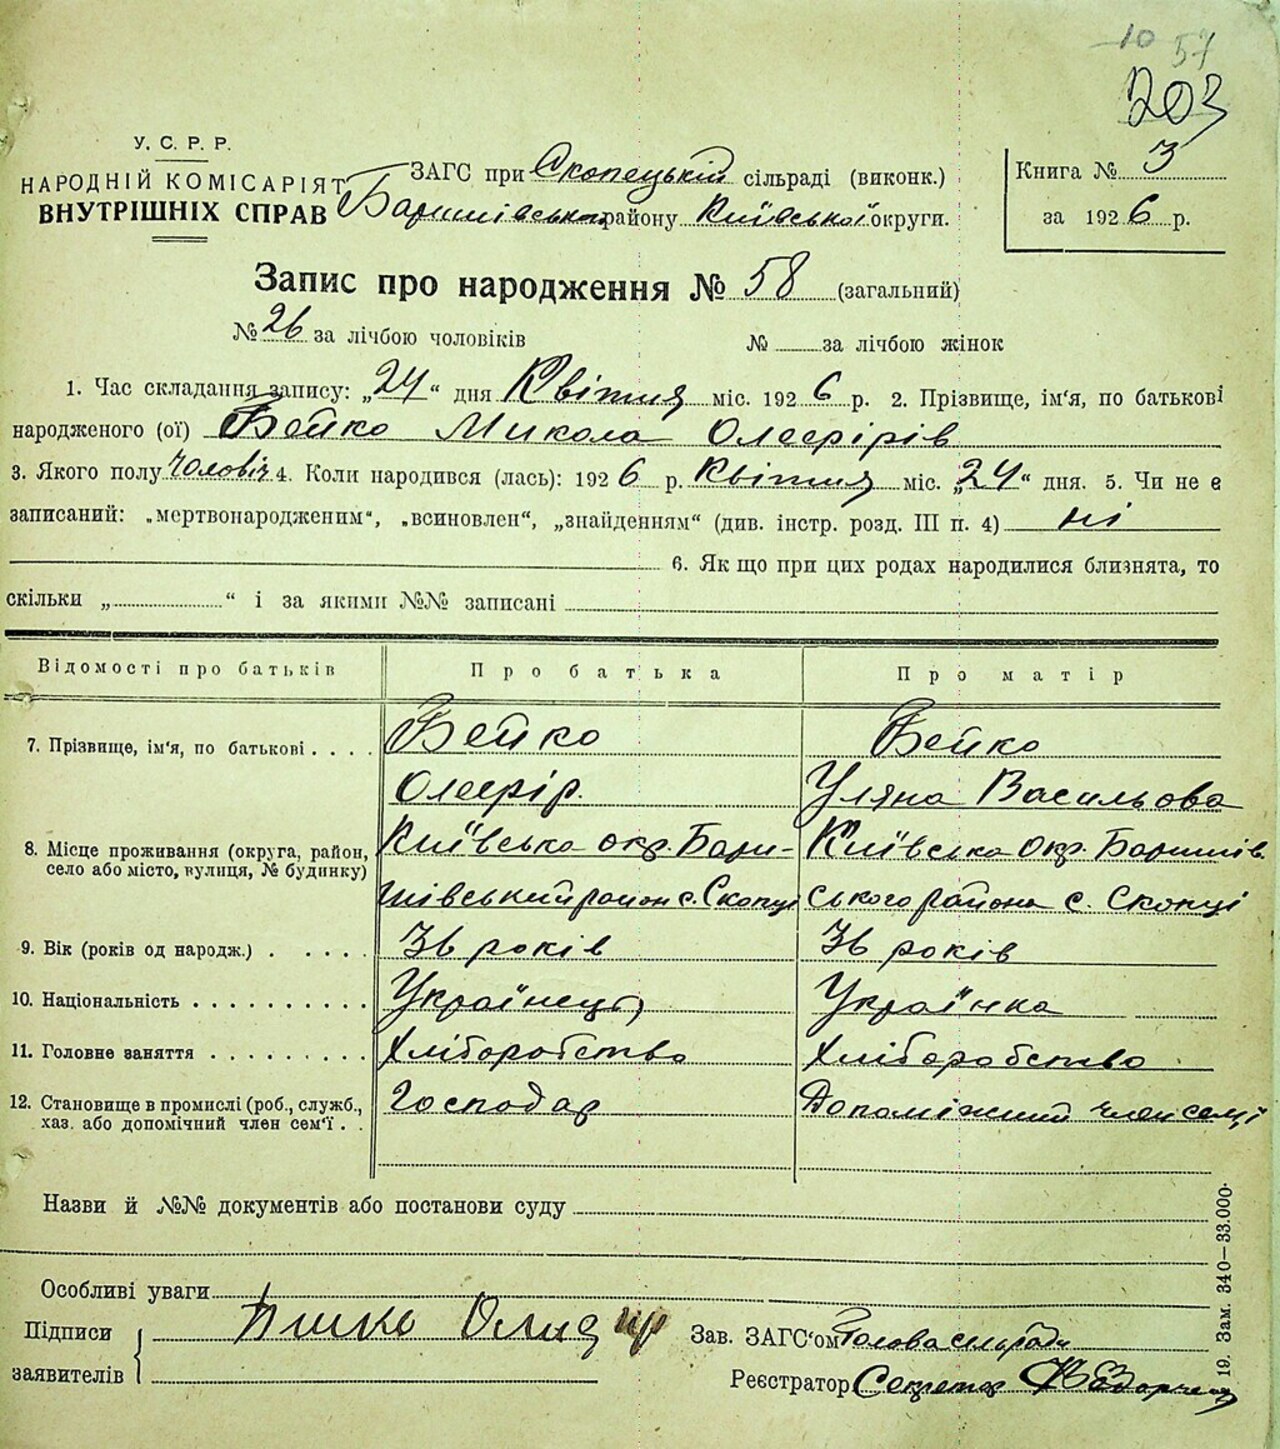 10 57
203
У. С. Р. Р.
НАРОДНІЙ КОМІСАРІЯТ
ВНУТРІШНІХ СПРАВ
ЗАГС при Скопецькій сільраді (виконк.)
Баришівського району Київської округи.
Книга № 3
за 1926 р.
Запис про народження № 58 (загальний)
№ 26 за лічбою чоловіків № за лічбою жінок
1. Час складання запису: „24“ дня Квітня міс. 1926 р. 2. Прізвище, ім'я, по батькові
народженого (ої) Бейко Микола Олефірів
3. Якого полу чоловіч 4. Коли народився (лась): 1926 р. Квітня міс. „24“ дня. 5. Чи не є
записаний: „мертвонародженим“, „всиновлен“, „знайденням“ (див. інстр. розд. III п. 4) ні
6. Як що при цих родах народилися близнята, то
скільки „ “ і за якими №№ записані
Відомості про батьків Про батька Про матір
7. Прізвище, ім'я, по батькові . . . . Бейко Бейко
Олефір. Уляна Васильова
8. Місце проживання (округа, район, село або місто, вулиця, № будинку) Київська окр. Бари- Київська окр. Баришів.
шівський район с. Скопці ського района с. Скопці
9. Вік (років од народж.) . . . . . 36 років 36 років
10. Національність . . . . . . . . . . Українець Українка
11. Головне заняття . . . . . . . . . Хліборобство Хліборобство
12. Становище в промислі (роб., служб., хаз. або допомічний член сем'ї . . Господар Допоміжний член семї
Назви й №№ документів або постанови суду
Особливі уваги
Підписи
заявителів
Зав. ЗАГС'ом Голова сільради
Реєстратор Секретар
19. Зам. 340—33.000.